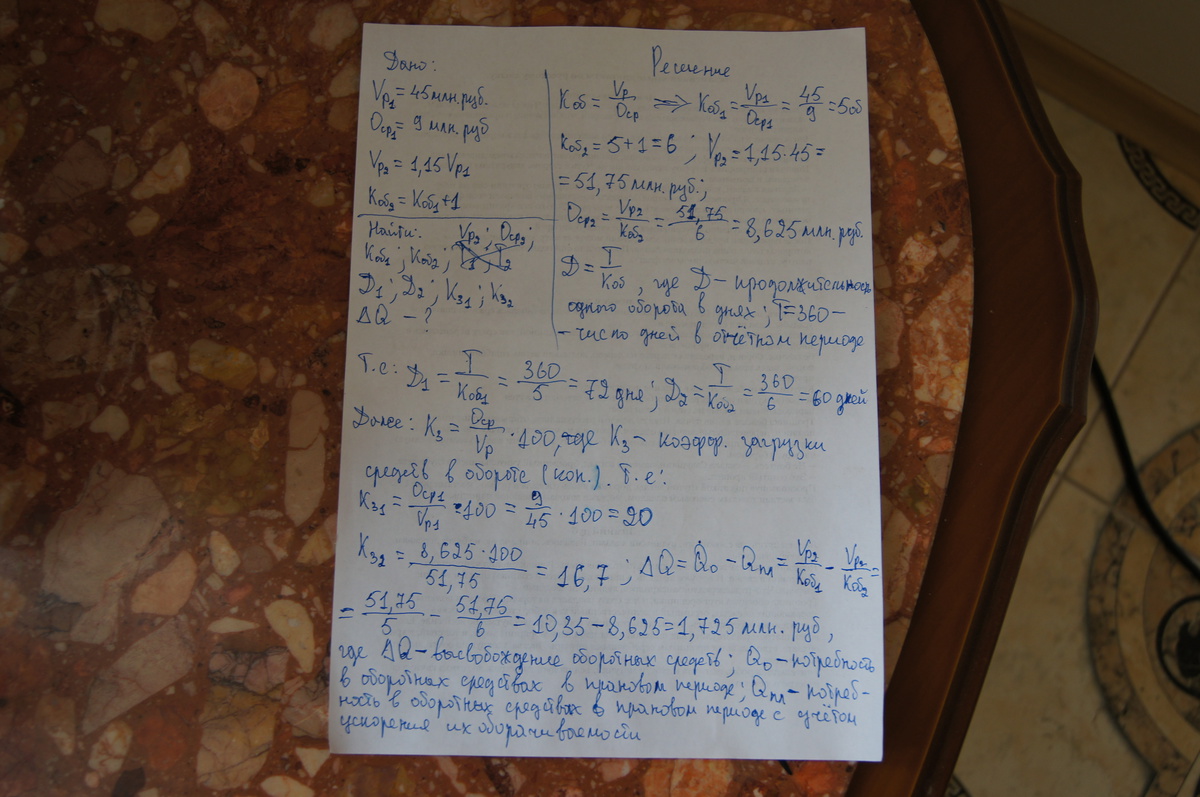 Дано:
Vр₁ = 45 млн. руб.
Оср₁ = 9 млн. руб
Vр₂ = 1,15 Vр₁
Kоб₂ = Kоб₁ + 1
Найти: Vр₂; Оср₂;
Kоб₁; Kоб₂;
Д₁; Д₂; Kз₁; Kз₂
ΔQ – ?
Решение
Kоб = Vр/Оср => Kоб₁ = Vр₁/Оср₁ = 45/9 = 5 об
Kоб₂ = 5+1 = 6 ; Vр₂ = 1,15·45 =
= 51,75 млн. руб.;
Оср₂ = Vр₂/Kоб₂ = 51,75/6 = 8,625 млн. руб.
Д = T/Kоб, где Д – продолжительность
одного оборота в днях; T=360 –
– число дней в отчётном периоде
Т.е: Д₁ = T/Kоб₁ = 360/5 = 72 дня; Д₂ = T/Kоб₂ = 360/6 = 60 дней
Далее: Kз = Оср/Vр · 100, где Kз – коэфф. загрузки
средств в обороте (коп.). Т.е:
Kз₁ = Оср₁/Vр₁ · 100 = 9/45 · 100 = 20
Kз₂ = 8,625·100/51,75 = 16,7 ; ΔQ = Q₀ – Qпл = Vр₂/Kоб₁ – Vр₂/Kоб₂ =
= 51,75/5 – 51,75/6 = 10,35 – 8,625 = 1,725 млн. руб,
где ΔQ – высвобождение оборотных средств; Q₀ – потребность
в оборотных средствах в плановом периоде; Qпл – потреб-
ность в оборотных средствах в плановом периоде с учётом
ускорения их оборачиваемости